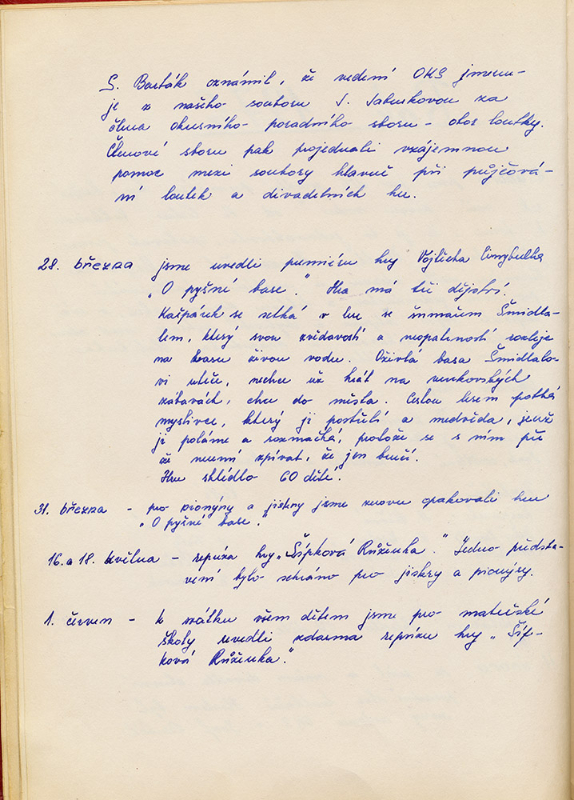 S. Barták oznámil, že vedení OKS jmenu-
je z našeho souboru S. za
člena okresního poradního sboru - obor loutky.
Členové sboru pak projednali vzájemnou
pomoc mezi soubory hlavně při půjčová-
ní loutek a divadelních her.
28. března jsme uvedli premiéru hry Vojtěcha Cinybulka
„O pyšné base." Hra má tři dějství.
Kašpárek se setká v lese se šumařem Šmidla-
lem, který svou zvědavostí a neopatrností rozlije
na basu živou vodu. Oživlá basa Šmidlalo-
vi uteče, nechce už hrát na venkovských
zábavách, chce do města. Cestou lesem potká
myslivce, který ji postřelí a medvěda, jenž
ji poláme a rozmačká, protože se s ním pře
že neumí zpívat, že jen bručí.
Hru shlédlo 60 dětí.
31. března - pro pionýry a jiskry jsme znovu opakovali hru
„O pyšné base."
16. a 18. května - repríza hry „Šípková Růženka." Jedno předsta-
vení bylo sehráno pro jiskry a pionýry.
1. červen - k svátku všem dětem jsme pro mateřské
školy uvedli zdarma reprízu hry „Šíp-
ková Růženka."